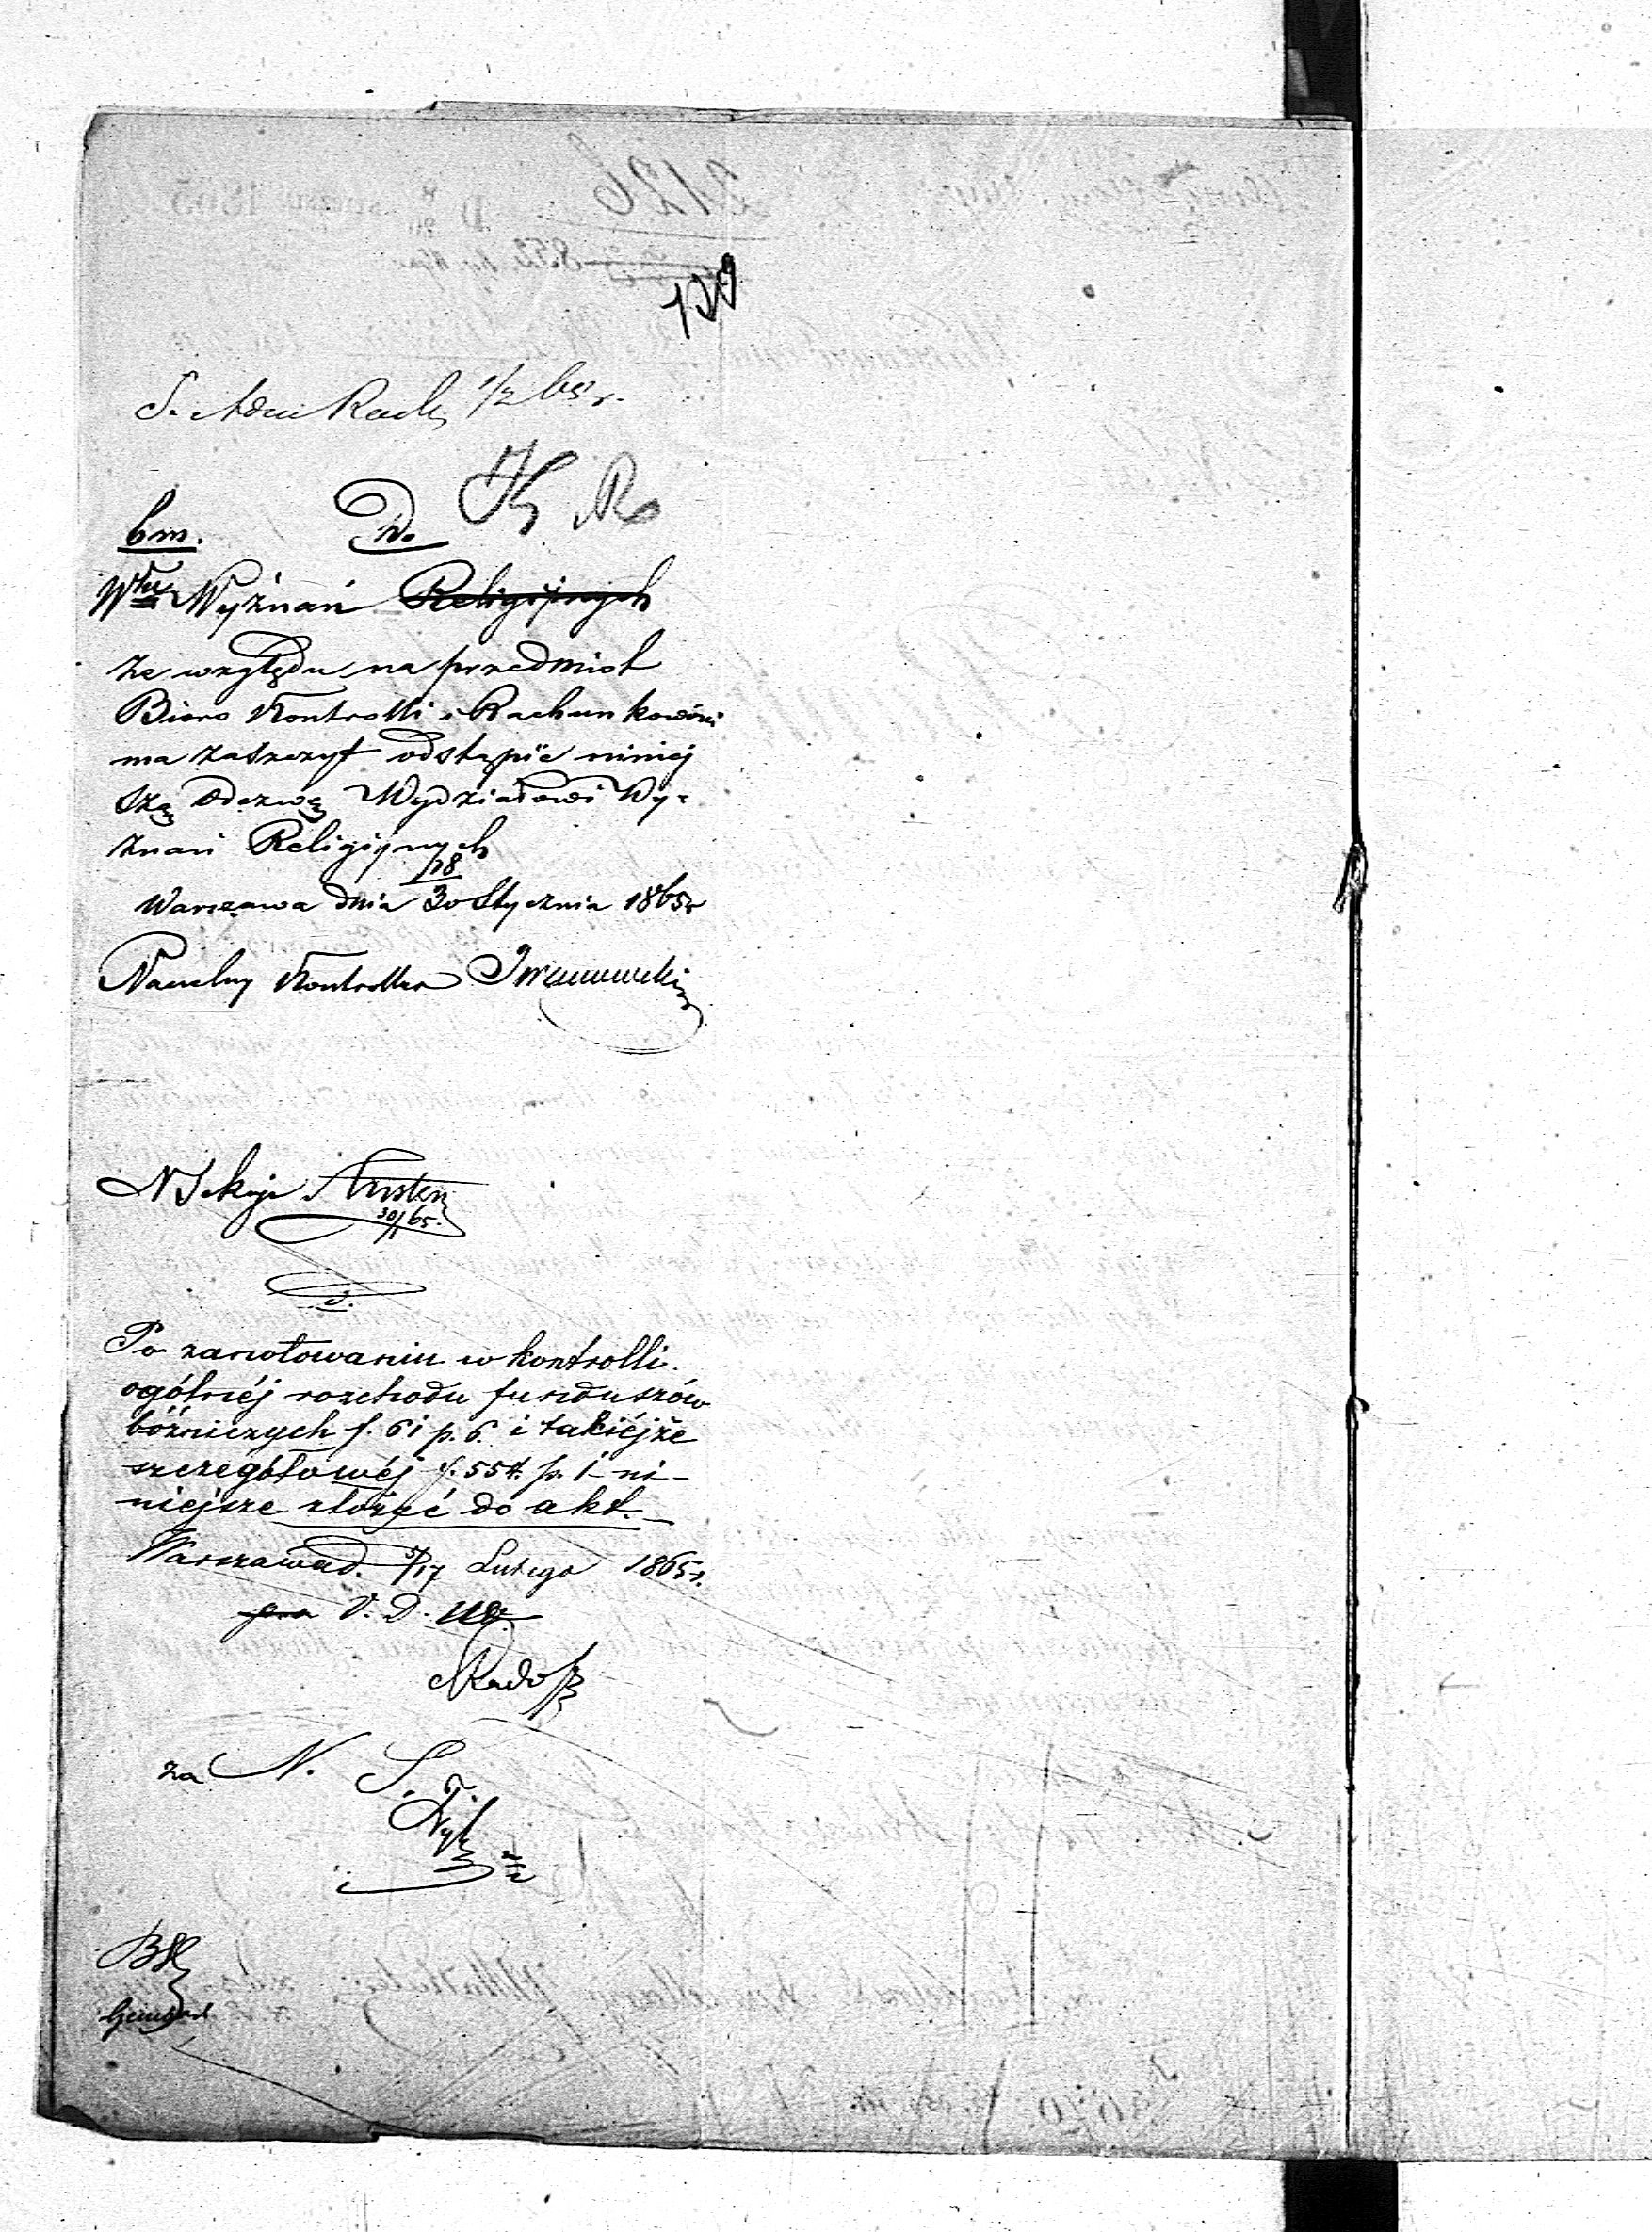 bm. Do
Włu Wyżnań Religijnych
ze względu na przedmiot
Bióro Kontrolli i Rachunkowości
ma zaszczyt odstąpić niniej
szą odezwę Wydziałowi Wy-
znań Religijnych
Warszawa dnia 18/30 Stycznia 1865r
Naczelny Kontroller
N Sekcji
30/1 65.
Po zanotowaniu w kontrolli
ogólnéj rozchodu funduszów
bóżniczych f. 61 p. 6. i takiéjże
szczegółowéj f. 554. p. 1 – ni-
niejsze złożyć do akt. –
Warszawa d. 5/17 Lutego 1865 r.
V. D.
za N. S.